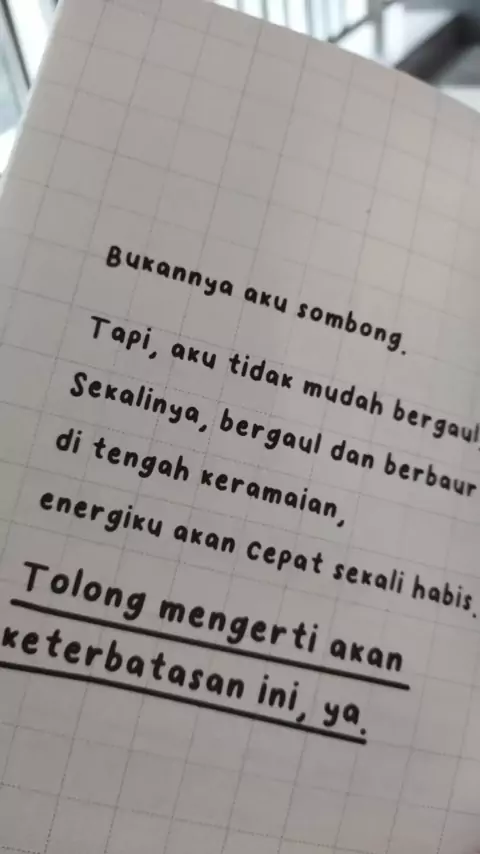 Bukannya aku sombong.
Tapi, aku tidak mudah bergaul.
Sekalinya, bergaul dan berbaur
di tengah keramaian,
energiku akan cepat sekali habis.
Tolong mengerti akan
keterbatasan ini, ya.